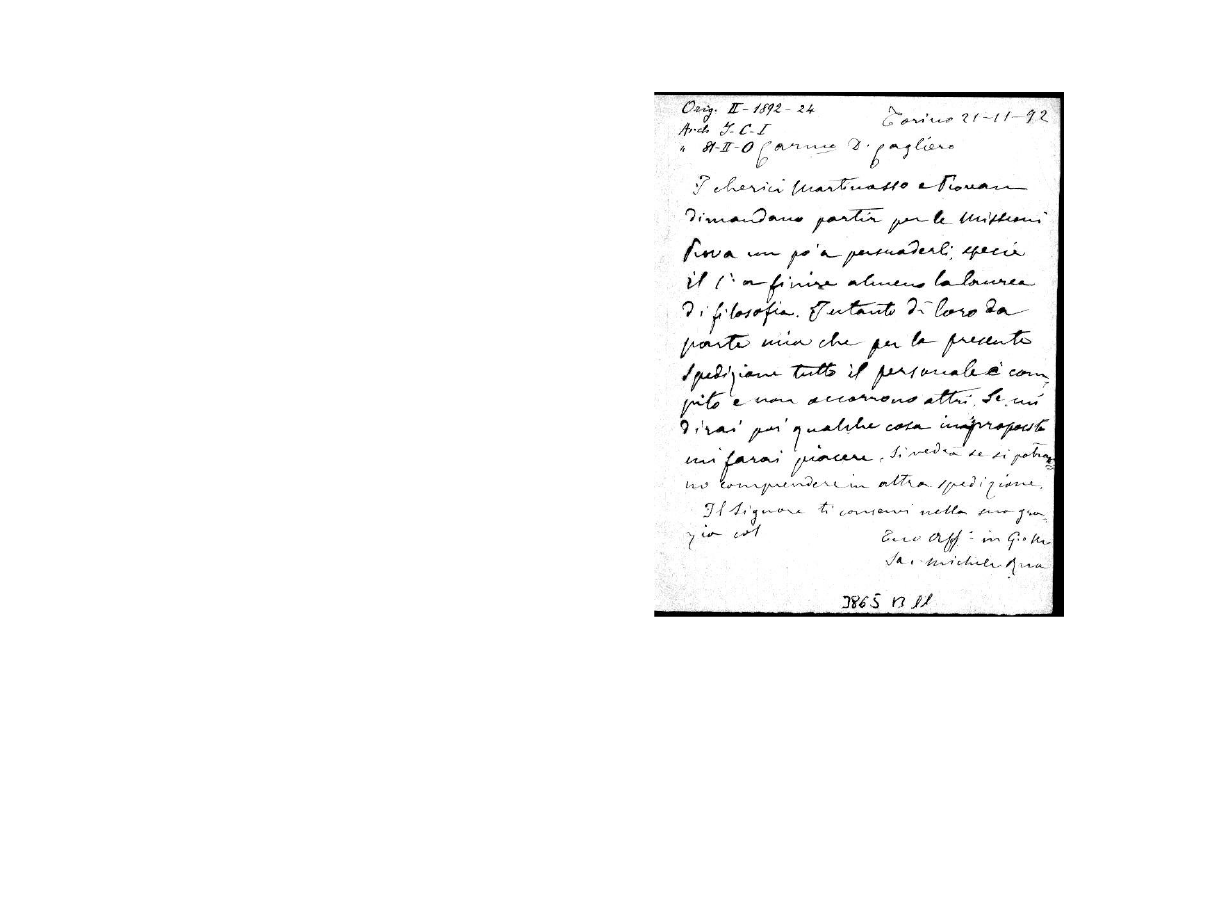 Orig. II - 1892 - 24
Torino 21-11-92
Arch. S-C-I
" 81-II-O
Carmo D. Cagliero
I cherici Martinasso e
dimandano partir per le Missioni
Prova un po' a persuaderli, specie
il 1° a finire almeno la laurea
di filosofia. Intanto di' loro da
parte mia che per la presente
spedizione tutto il personale è com-
pito e non occorrono altri. Se mi
dirai poi qualche cosa in proposito
mi farai piacere. Si vedrà se si potran-
no comprendere in altra spedizione.
Il Signore ti conservi nella sua gra-
zia
Tuo Aff. in G.
Sac. Michele Rua
3865 B 11